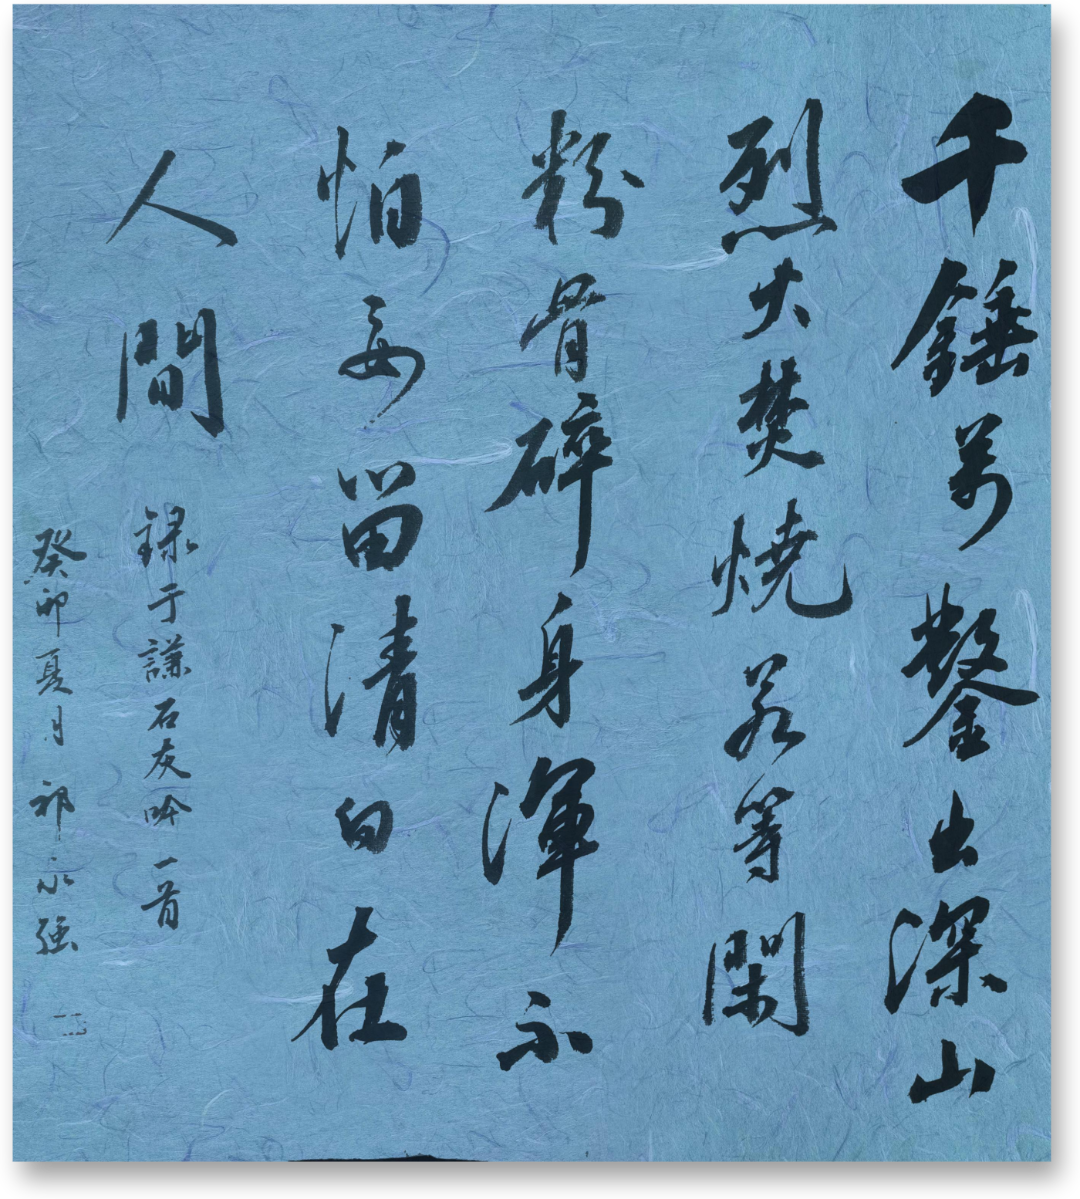 千錘萬鑿出深山
烈火焚燒若等閑
粉骨碎身渾不
怕要留清白在
人間
録于謙石灰吟一首
癸卯夏月祁永强